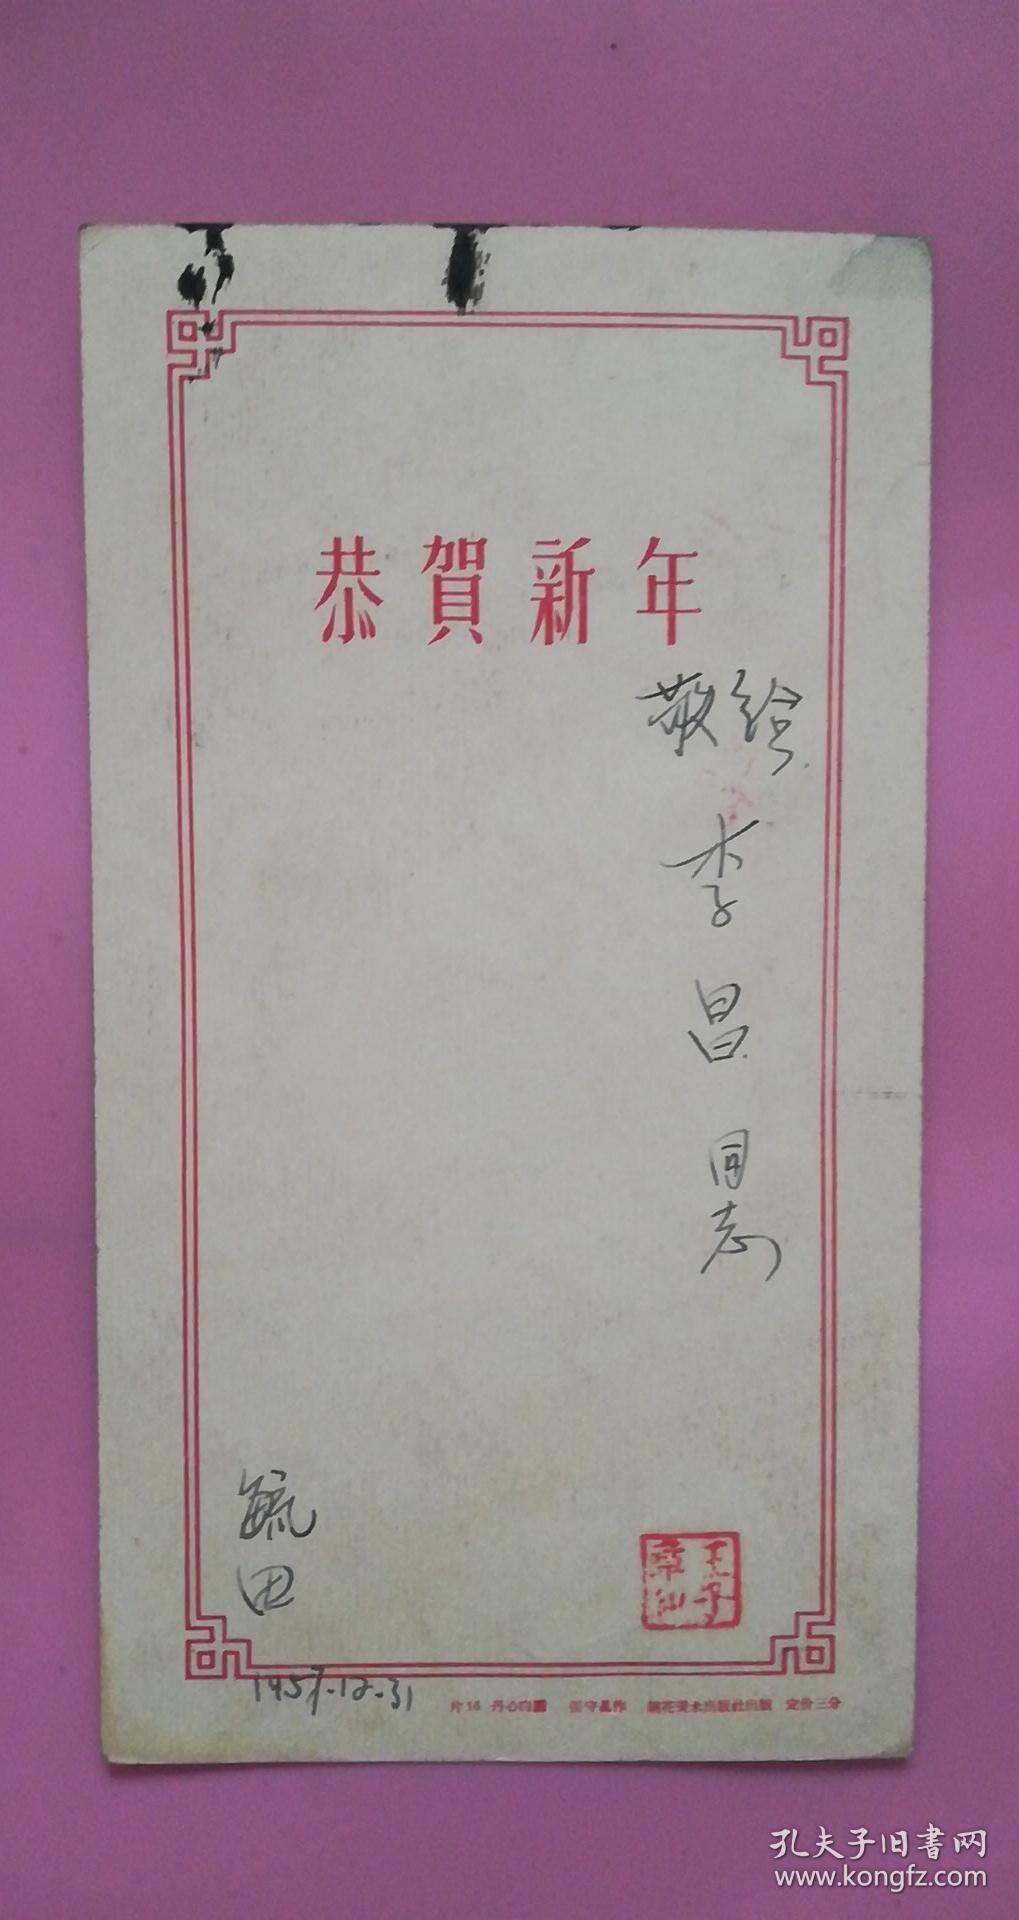 恭賀新年
敬給
李昌同志
毓田
王子
章仙
1957.12.31
片16 丹心白露 張守義作 朝花美术出版社出版 定价三分
孔夫子旧书网
www.kongfz.com